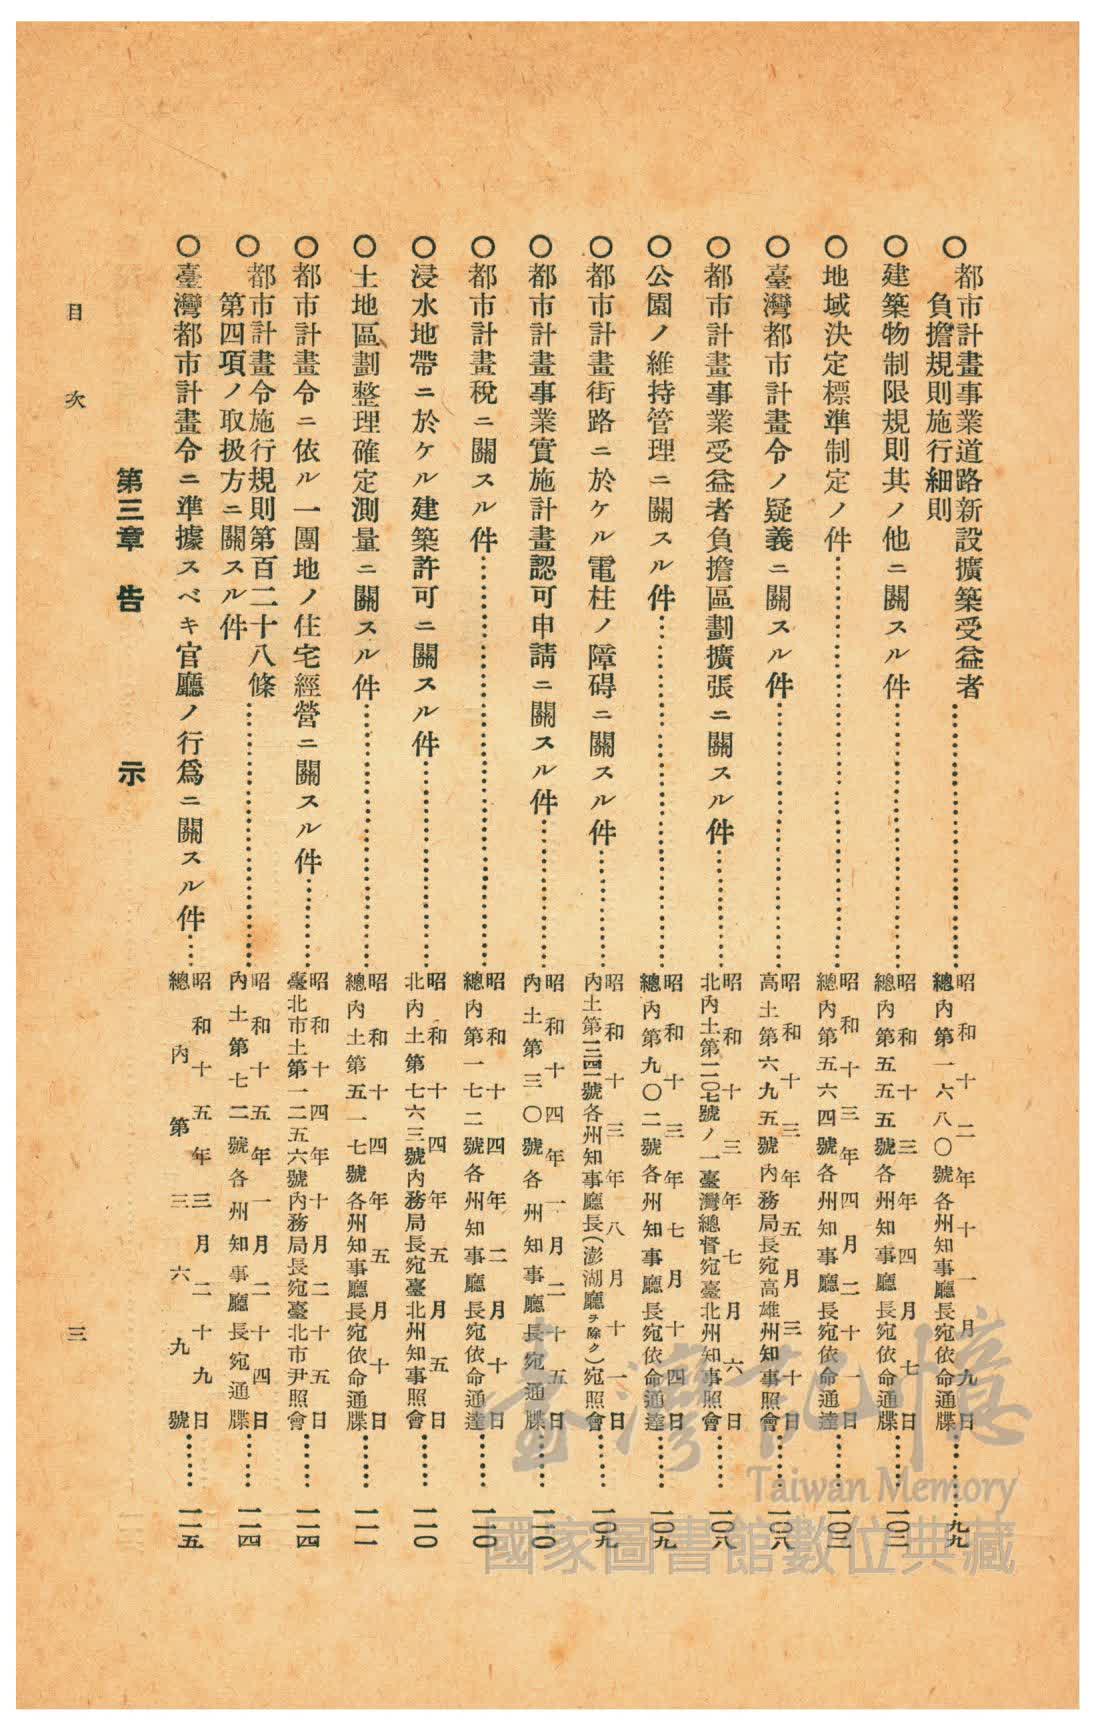 〇都市計畫事業道路新設擴築受益者
負擔規則施行細則………昭和十二年十一月九日
總內第一六八〇號各州知事廳長宛依命通牒………九九
〇建築物制限規則其ノ他ニ關スル件………昭和十三年四月七日
總內第五五五號各州知事廳長宛依命通牒………一〇二
〇地域決定標準制定ノ件………昭和十三年四月二十一日
總內第五六四號各州知事廳長宛依命通達………一〇三
〇臺灣都市計畫令ノ疑義ニ關スル件………昭和十三年五月三十日
高土第六九五號內務局長宛高雄州知事照會………一〇八
〇都市計畫事業受益者負擔區劃擴張ニ關スル件………昭和十三年七月六日
北內土第二〇七號ノ一臺灣總督宛臺北州知事照會………一〇八
〇公園ノ維持管理ニ關スル件………昭和十三年七月十四日
總內第九〇二號各州知事廳長宛依命通達………一〇九
〇都市計畫街路ニ於ケル電柱ノ障碍ニ關スル件………昭和十三年八月十一日
內土第三四二號各州知事廳長(澎湖廳ヲ除ク)宛照會………一〇九
〇都市計畫事業實施計畫認可申請ニ關スル件………昭和十四年一月二十五日
內土第三〇號各州知事廳長宛通牒………一一〇
〇都市計畫稅ニ關スル件………昭和十四年二月十日
總內第一七二號各州知事廳長宛依命通達………一一〇
〇浸水地帶ニ於ケル建築許可ニ關スル件………昭和十四年五月五日
北內土第七六三號內務局長宛臺北州知事照會………一一〇
〇土地區劃整理確定測量ニ關スル件………昭和十四年五月十日
總內土第五一七號各州知事廳長宛依命通牒………一一一
〇都市計畫令ニ依ル一團地ノ住宅經營ニ關スル件………昭和十四年十月二十五日
臺北市土第一二五六號內務局長宛臺北市尹照會………一一四
〇都市計畫令施行規則第百二十八條
第四項ノ取扱方ニ關スル件………昭和十五年一月二十四日
內土第七二號各州知事廳長宛通牒………一一四
〇臺灣都市計畫令ニ準據スベキ官廳ノ行爲ニ關スル件………昭和十五年三月二十九日
總內第三六九號………一一五
第三章 告示
目次
三
臺灣記憶
Taiwan Memory
國家圖書館數位典藏